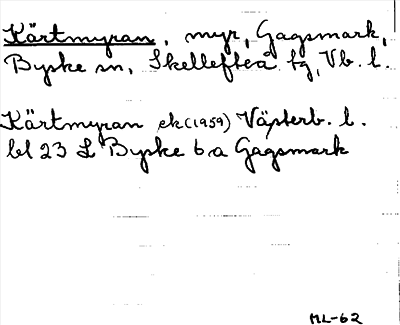 Kärtmyran, myr, Gagsmark,
Byske sn, Skellefteå tg, Vb. l.
Kärtmyran ek (1959) Västerb. l.
bl 23 L Byske 6 a Gagsmark
ML-62